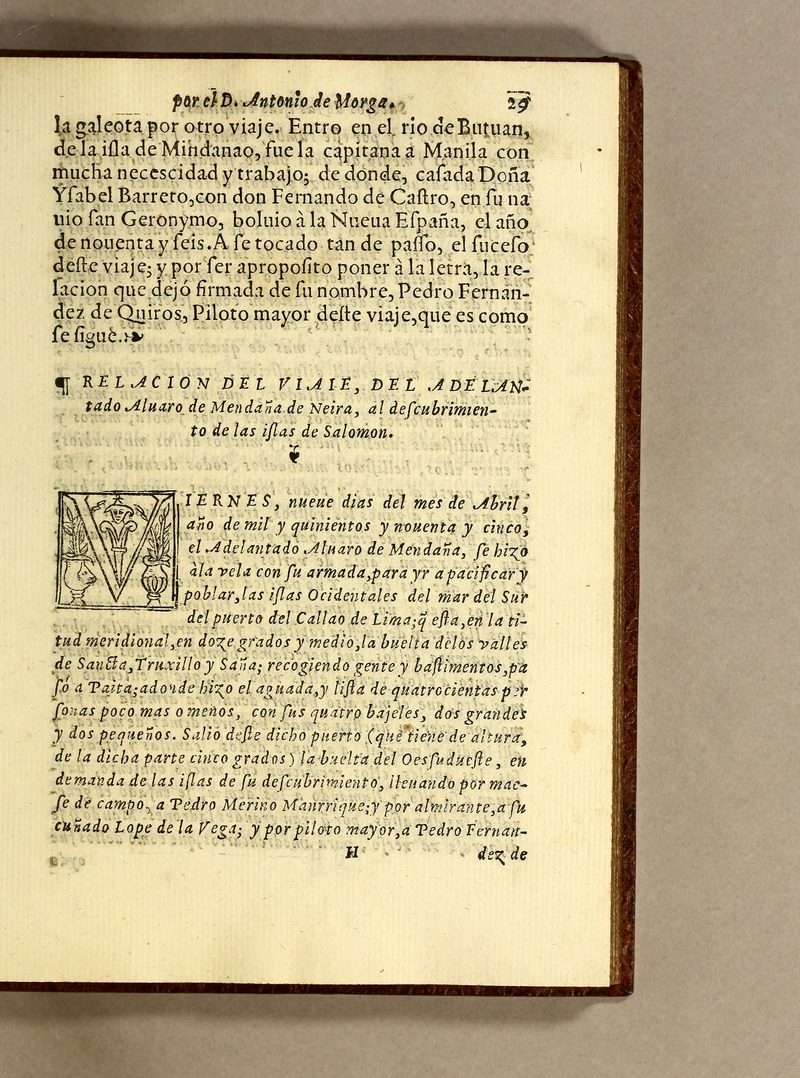 por el D. Antonio de Morga. 29
la galeota por otro viaje. Entro en el rio de Butuan,
de la iſla de Mindanao, fue la capitana a Manila con
mucha necescidad y trabajo; de donde, caſada Doña
Yſabel Barreto, con don Fernando de Caſtro, en ſu na
uio ſan Geronymo, boluio à la Nueua Eſpaña, el año
de nouenta y ſeis. A ſe tocado tan de paſſo, el ſuceſo
deſte viaje; y por ſer apropoſito poner à la letra, la re-
lacion que dejó firmada de ſu nombre, Pedro Fernan-
dez de Quiros, Piloto mayor deſte viaje, que es como
ſe ſigue.
¶ RELACION DEL VIAIE, DEL ADELAN-
tado Aluaro de Mendaña de Neira, al deſcubrimien-
to de las iſlas de Salomon.
VIERNES, nueue dias del mes de Abril,
año de mil y quinientos y nouenta y cinco,
el Adelantado Aluaro de Mendaña, ſe hizo
àla vela con ſu armada, para yr a pacificar y
poblar, las iſlas Ocidentales del mar del Sur
del puerto del Callao de Lima; q̃ eſta, en la ti-
tud meridional, en doze grados y medio, la buelta delos valles
de Sancta, Truxillo y Saña; recogiendo gente y baſtimentos, pa
ſó a Paita; adonde hizo el aguada, y liſta de quatrocientas per
ſonas poco mas o menos, con ſus quatro bajeles, dos grandes
y dos pequeños. Salio deſte dicho puerto (que tiene de altura,
de la dicha parte cinco grados) la buelta del Oesſudueſte, en
demanda de las iſlas de ſu deſcubrimiento, lleuando por maeſ-
ſe de campo, a Pedro Merino Manrrique; y por almirante, a ſu
cuñado Lope de la Vega; y por piloto mayor, a Pedro Fernan-
H dez de